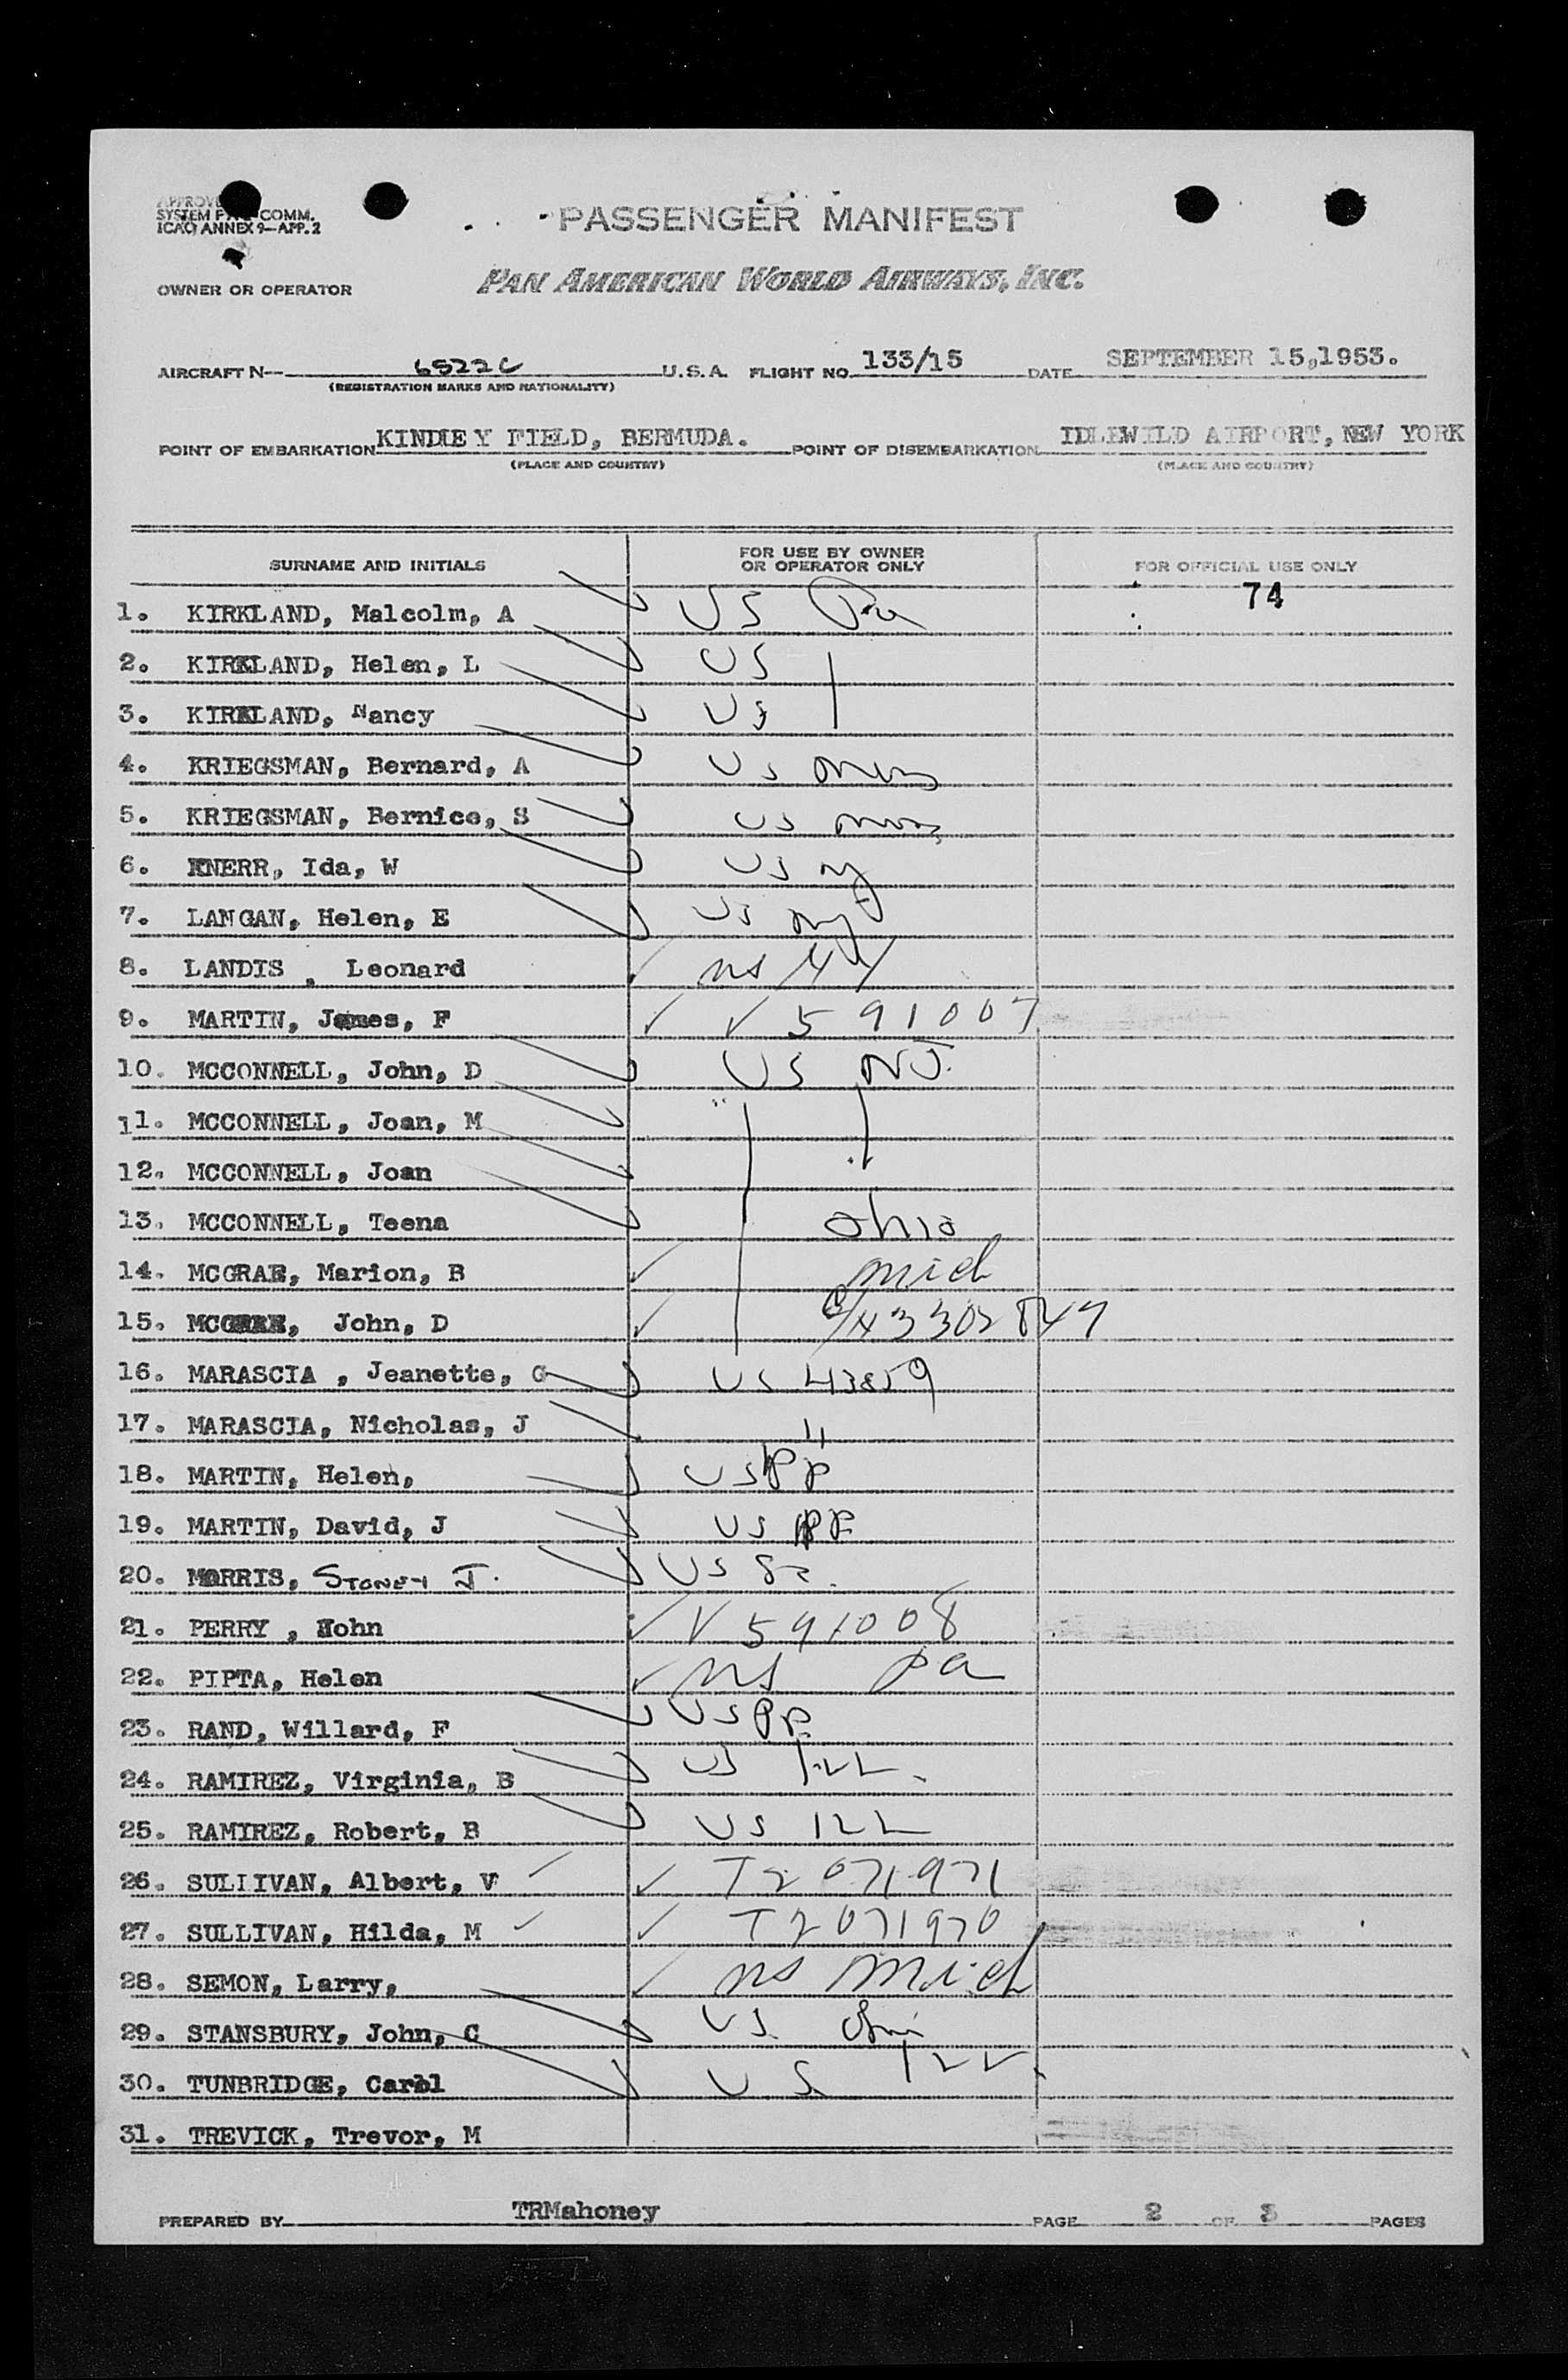 SYSTEM COMM.
ICAO ANNEX 9—APP. 2
PASSENGER MANIFEST
OWNER OR OPERATOR PAN AMERICAN WORLD AIRWAYS, INC.
AIRCRAFT N— 6522C U.S.A. FLIGHT NO. 133/15 DATE SEPTEMBER 15,1953.
(REGISTRATION MARKS AND NATIONALITY)
POINT OF EMBARKATION KINDLEY FIELD, BERMUDA. POINT OF DISEMBARKATION IDLEWILD AIRPORT, NEW YORK
(PLACE AND COUNTRY) (PLACE AND COUNTRY)
SURNAME AND INITIALS FOR USE BY OWNER OR OPERATOR ONLY FOR OFFICIAL USE ONLY
74
1. KIRKLAND, Malcolm, A US Pa
2. KIRKLAND, Helen, L US
3. KIRKLAND, Nancy US
4. KRIEGSMAN, Bernard, A US
5. KRIEGSMAN, Bernice, S US
6. KNERR, Ida, W US NY
7. LANGAN, Helen, E US NY
8. LANDIS , Leonard US NY
9. MARTIN, James, F V 591007
10. MCCONNELL, John, D US NJ.
11. MCCONNELL, Joan, M "
12. MCCONNELL, Joan
13. MCCONNELL, Teena Ohio
14. MCGRAE, Marion, B Mich
15. John, D
16. MARASCIA , Jeanette, G US 43859
17. MARASCIA, Nicholas, J "
18. MARTIN, Helen, US PP
19. MARTIN, David, J US PP
20. MORRIS, STONEY J. US
21. PERRY , John V 591008
22. PIPTA, Helen US Pa
23. RAND, Willard, F US PP
24. RAMIREZ, Virginia, B US ILL.
25. RAMIREZ, Robert, B US ILL
26. SULLIVAN, Albert, V T2 071971
27. SULLIVAN, Hilda, M T2071970
28. SEMON, Larry, US Mich
29. STANSBURY, John, C US.
30. TUNBRIDGE, Carol U S. ILL.
31. TREVICK, Trevor, M
PREPARED BY TRMahoney PAGE 2 OF 3 PAGES